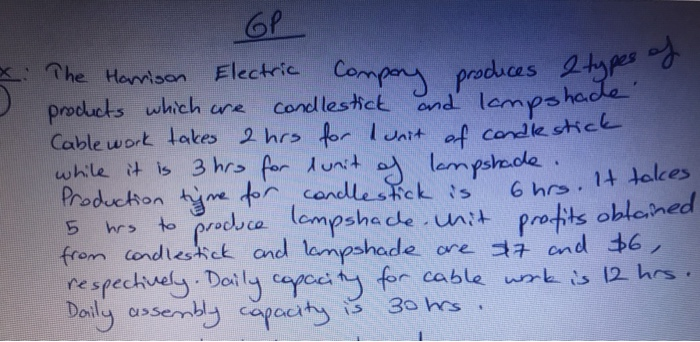 GP
x: The Harrison Electric Company produces 2 types of
products which are candlestick and lampshade.
Cable work takes 2 hrs for 1 unit of candle stick
while it is 3 hrs for 1 unit of lampshade.
Production tyme for candlestick is 6 hrs. It takes
5 hrs to produce lampshade. Unit profits obtained
from candlestick and lampshade are $7 and $6,
respectively. Daily capacity for cable work is 12 hrs.
Daily assembly capacity is 30 hrs.